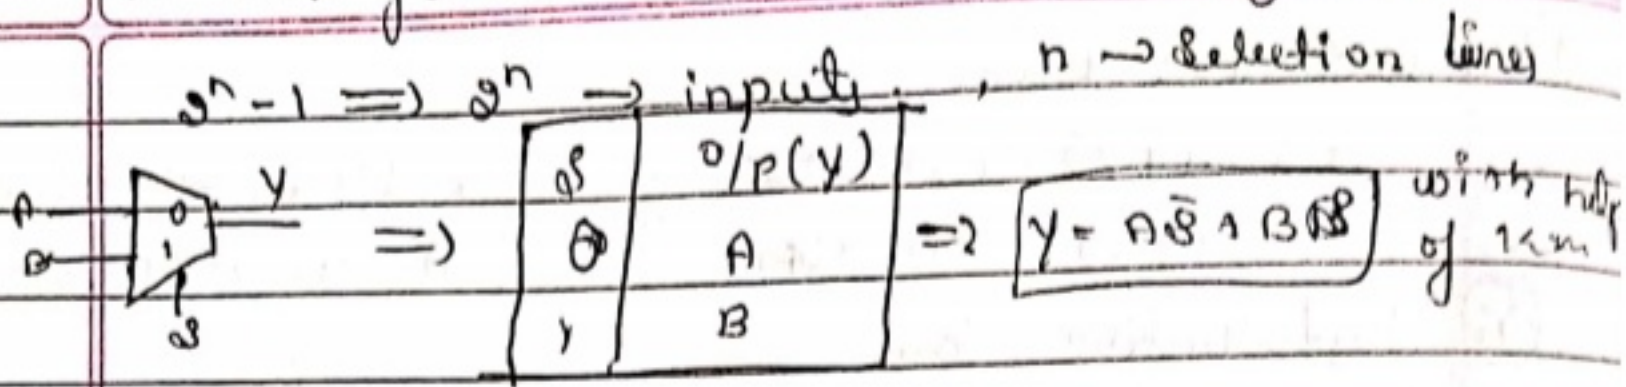 2ⁿ - 1 => 2ⁿ → inputs , n → Selection lines
A
B
0
1
S
Y
=>
S O/P(Y)
0 A
1 B
=> Y = AS̄ + BS
with help
of kmap